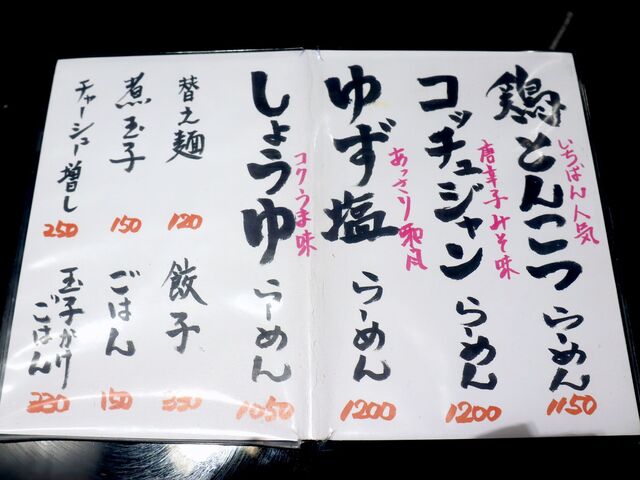 鶏とんこつらーめん
いちばん人気
1150
コッチュジャンらーめん
唐辛子みそ味
1200
ゆず塩らーめん
あっさり
1200
しょうゆらーめん
コクうま味
1050
替え麺
120
煮玉子
150
チャーシュー増し
250
餃子
ごはん
150
玉子かけ
ごはん